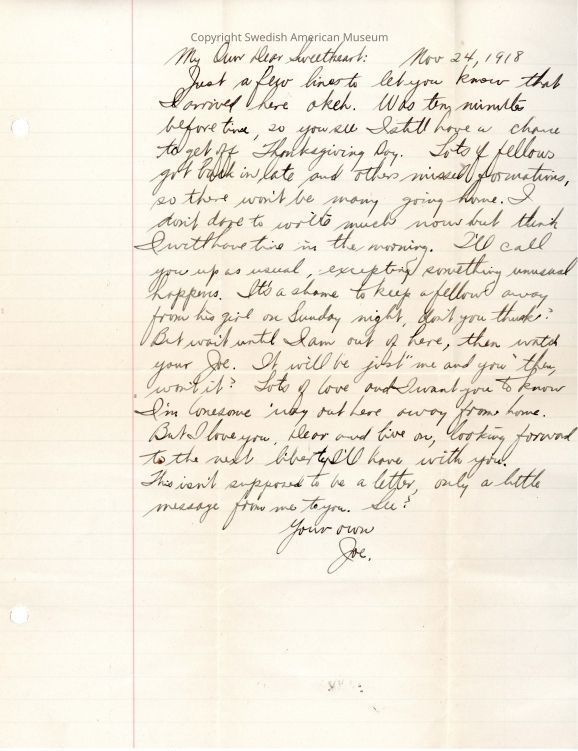 Copyright Swedish American Museum
My Own Dear Sweetheart: Nov 24, 1918
Just a few lines to let you know that
I arrived here okeh. Was ten minutes
before time, so you see I still have a chance
to get off Thanksgiving Day. Lots of fellows
got back in late and others missed formations,
so there won't be many going home. I
don't dare to write much now but think
I will have time in the morning. I'll call
you up as usual, excepting something unusual
happens. It's a shame to keep a fellow away
from his girl on Sunday night, don't you think?
But wait until I am out of here, then watch
your Joe. It will be just "me and you" then,
won't it? Lots of love and I want you to know
I'm lonesome 'way out here away from home.
But I love you, Dear and live on, looking forward
to the next liberty I'll have with you.
This isn't supposed to be a letter, only a little
message from me to you. See?
Your own
Joe.